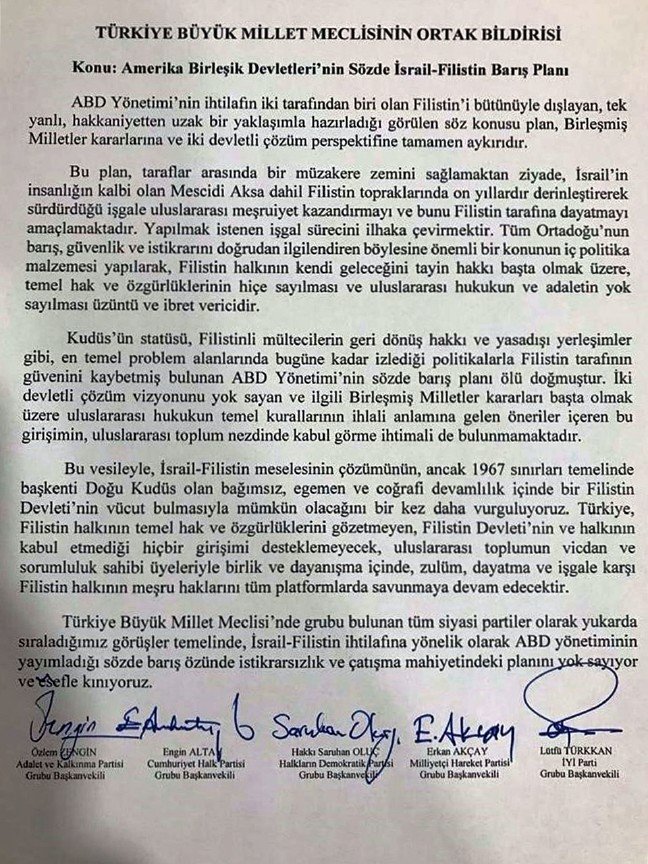 TÜRKİYE BÜYÜK MİLLET MECLİSİNİN ORTAK BİLDİRİSİ
Konu: Amerika Birleşik Devletleri'nin Sözde İsrail-Filistin Barış Planı
ABD Yönetimi'nin ihtilafın iki tarafından biri olan Filistin'i bütünüyle dışlayan, tek
yanlı, hakkaniyetten uzak bir yaklaşımla hazırladığı görülen söz konusu plan, Birleşmiş
Milletler kararlarına ve iki devletli çözüm perspektifine tamamen aykırıdır.
Bu plan, taraflar arasında bir müzakere zemini sağlamaktan ziyade, İsrail'in
insanlığın kalbi olan Mescidi Aksa dahil Filistin topraklarında on yıllardır derinleştirerek
sürdürdüğü işgale uluslararası meşruiyet kazandırmayı ve bunu Filistin tarafına dayatmayı
amaçlamaktadır. Yapılmak istenen işgal sürecini ilhaka çevirmektir. Tüm Ortadoğu'nun
barış, güvenlik ve istikrarını doğrudan ilgilendiren böylesine önemli bir konunun iç politika
malzemesi yapılarak, Filistin halkının kendi geleceğini tayin hakkı başta olmak üzere,
temel hak ve özgürlüklerinin hiçe sayılması ve uluslararası hukukun ve adaletin yok
sayılması üzüntü ve ibret vericidir.
Kudüs'ün statüsü, Filistinli mültecilerin geri dönüş hakkı ve yasadışı yerleşimler
gibi, en temel problem alanlarında bugüne kadar izlediği politikalarla Filistin tarafının
güvenini kaybetmiş bulunan ABD Yönetimi'nin sözde barış planı ölü doğmuştur. İki
devletli çözüm vizyonunu yok sayan ve ilgili Birleşmiş Milletler kararları başta olmak
üzere uluslararası hukukun temel kurallarının ihlali anlamına gelen öneriler içeren bu
girişimin, uluslararası toplum nezdinde kabul görme ihtimali de bulunmamaktadır.
Bu vesileyle, İsrail-Filistin meselesinin çözümünün, ancak 1967 sınırları temelinde
başkenti Doğu Kudüs olan bağımsız, egemen ve coğrafi devamlılık içinde bir Filistin
Devleti'nin vücut bulmasıyla mümkün olacağını bir kez daha vurguluyoruz. Türkiye,
Filistin halkının temel hak ve özgürlüklerini gözetmeyen, Filistin Devleti'nin ve halkının
kabul etmediği hiçbir girişimi desteklemeyecek, uluslararası toplumun vicdan ve
sorumluluk sahibi üyeleriyle birlik ve dayanışma içinde, zulüm, dayatma ve işgale karşı
Filistin halkının meşru haklarını tüm platformlarda savunmaya devam edecektir.
Türkiye Büyük Millet Meclisi'nde grubu bulunan tüm siyasi partiler olarak yukarda
sıraladığımız görüşler temelinde, İsrail-Filistin ihtilafına yönelik olarak ABD yönetiminin
yayımladığı sözde barış özünde istikrarsızlık ve çatışma mahiyetindeki planını yok sayıyor
ve esefle kınıyoruz.
Saruhan Oluç. E. Akçay
Özlem ZENGİN Engin ALTAY Hakkı Saruhan OLUÇ Erkan AKÇAY Lütfü TÜRKKAN
Adalet ve Kalkınma Partisi Cumhuriyet Halk Partisi Halkların Demokratik Partisi Milliyetçi Hareket Partisi İYİ Parti
Grubu Başkanvekili Grubu Başkanvekili Grubu Başkanvekili Grubu Başkanvekili Grubu Başkanvekili